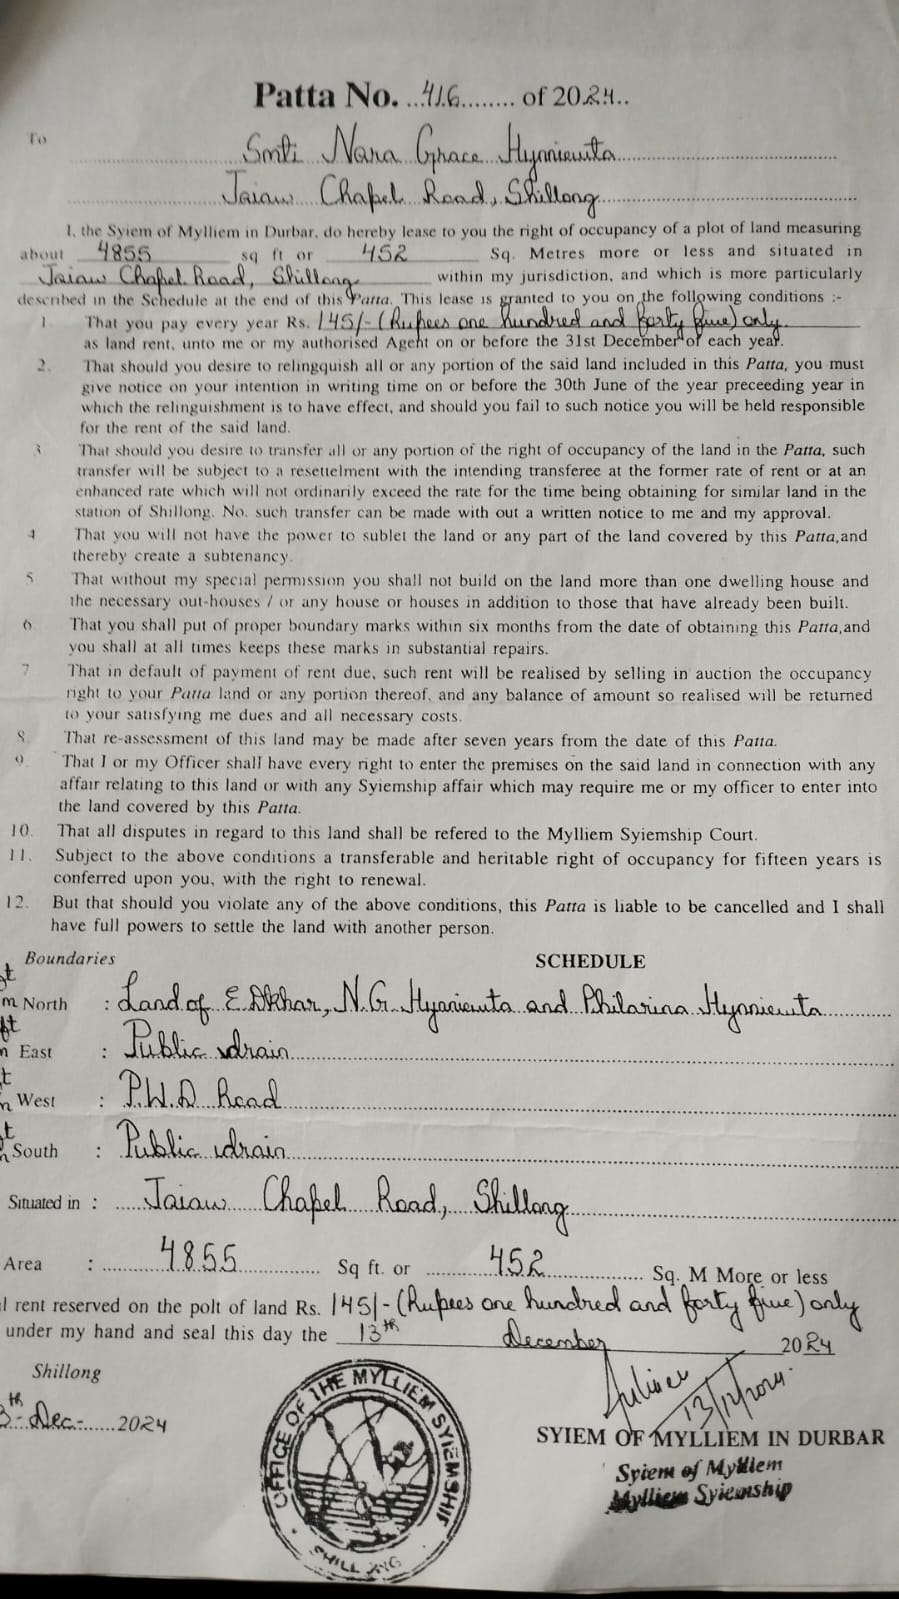 Patta No. 416 of 2024
To
Smti Nara Grace Hynniewta
Jaiaw Chapel Road, Shillong
I, the Syiem of Mylliem in Durbar, do hereby lease to you the right of occupancy of a plot of land measuring
about 4855 sq ft or 452 Sq. Metres more or less and situated in
Jaiaw Chapel Road, Shillong within my jurisdiction, and which is more particularly
described in the Schedule at the end of this Patta. This lease is granted to you on the following conditions :-
1 That you pay every year Rs. 145/- (Rupees one hundred and forty five) only
as land rent, unto me or my authorised Agent on or before the 31st December of each year.
2. That should you desire to relingquish all or any portion of the said land included in this Patta, you must
give notice on your intention in writing time on or before the 30th June of the year preceeding year in
which the relinguishment is to have effect, and should you fail to such notice you will be held responsible
for the rent of the said land.
3 That should you desire to transfer all or any portion of the right of occupancy of the land in the Patta, such
transfer will be subject to a resettelment with the intending transferee at the former rate of rent or at an
enhanced rate which will not ordinarily exceed the rate for the time being obtaining for similar land in the
station of Shillong. No. such transfer can be made with out a written notice to me and my approval.
4 That you will not have the power to sublet the land or any part of the land covered by this Patta,and
thereby create a subtenancy.
5 That without my special permission you shall not build on the land more than one dwelling house and
the necessary out-houses / or any house or houses in addition to those that have already been built.
6 That you shall put of proper boundary marks within six months from the date of obtaining this Patta,and
you shall at all times keeps these marks in substantial repairs.
7 That in default of payment of rent due, such rent will be realised by selling in auction the occupancy
right to your Patta land or any portion thereof, and any balance of amount so realised will be returned
to your satisfying me dues and all necessary costs.
8. That re-assessment of this land may be made after seven years from the date of this Patta.
9 That I or my Officer shall have every right to enter the premises on the said land in connection with any
affair relating to this land or with any Syiemship affair which may require me or my officer to enter into
the land covered by this Patta.
10. That all disputes in regard to this land shall be refered to the Mylliem Syiemship Court.
11. Subject to the above conditions a transferable and heritable right of occupancy for fifteen years is
conferred upon you, with the right to renewal.
12. But that should you violate any of the above conditions, this Patta is liable to be cancelled and I shall
have full powers to settle the land with another person.
Boundaries SCHEDULE
North : Land of E. Dkhar, N.G. Hynniewta and Philarina Hynniewta
East : Public drain
West : P.W.D Road
South : Public drain
Situated in : Jaiaw Chapel Road, Shillong
Area : 4855 Sq ft. or 452 Sq. M More or less
l rent reserved on the polt of land Rs. 145/- (Rupees one hundred and forty five) only
under my hand and seal this day the 13th December 2024
Shillong
3th Dec- 2024
13/12/2024.
OFFICE OF THE MYLLIEM SYIEMSHIP
SHILLONG
SYIEM OF MYLLIEM IN DURBAR
Syiem of Mylliem
Mylliem Syiemship